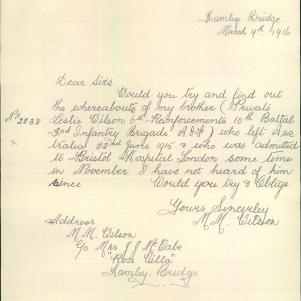 Hamley Bridge
March 9th, 1916
Dear Sirs
Would you try and find out
the whereabouts of my brother (Private
No 2838
Leslie Wilson 6th Reinforcements 10th Battal
x
3rd Infantry Brigade A.I.F) who left Aus
tralia 22nd June 1915 & who was admitted
to Bristol Hospital London some time
in November I have not heard of him
since Would you try & Oblige
Yours Sincerley
M. M. Wilson
Address
M. M. Wilson
C/o Mrs J J McCabe
"Rose Villa"
Hamley. Bridge